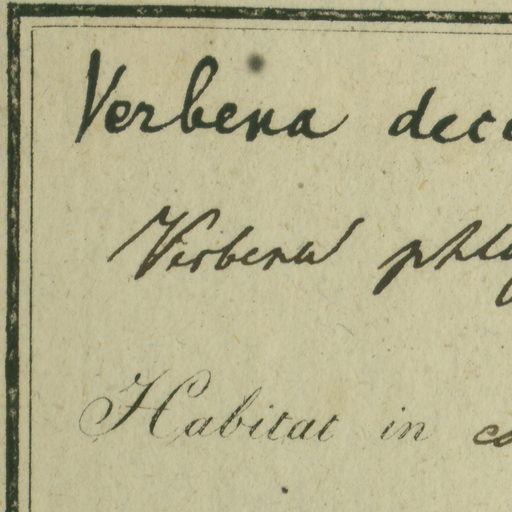 Verbena dec
Verbena phl
Habitat in